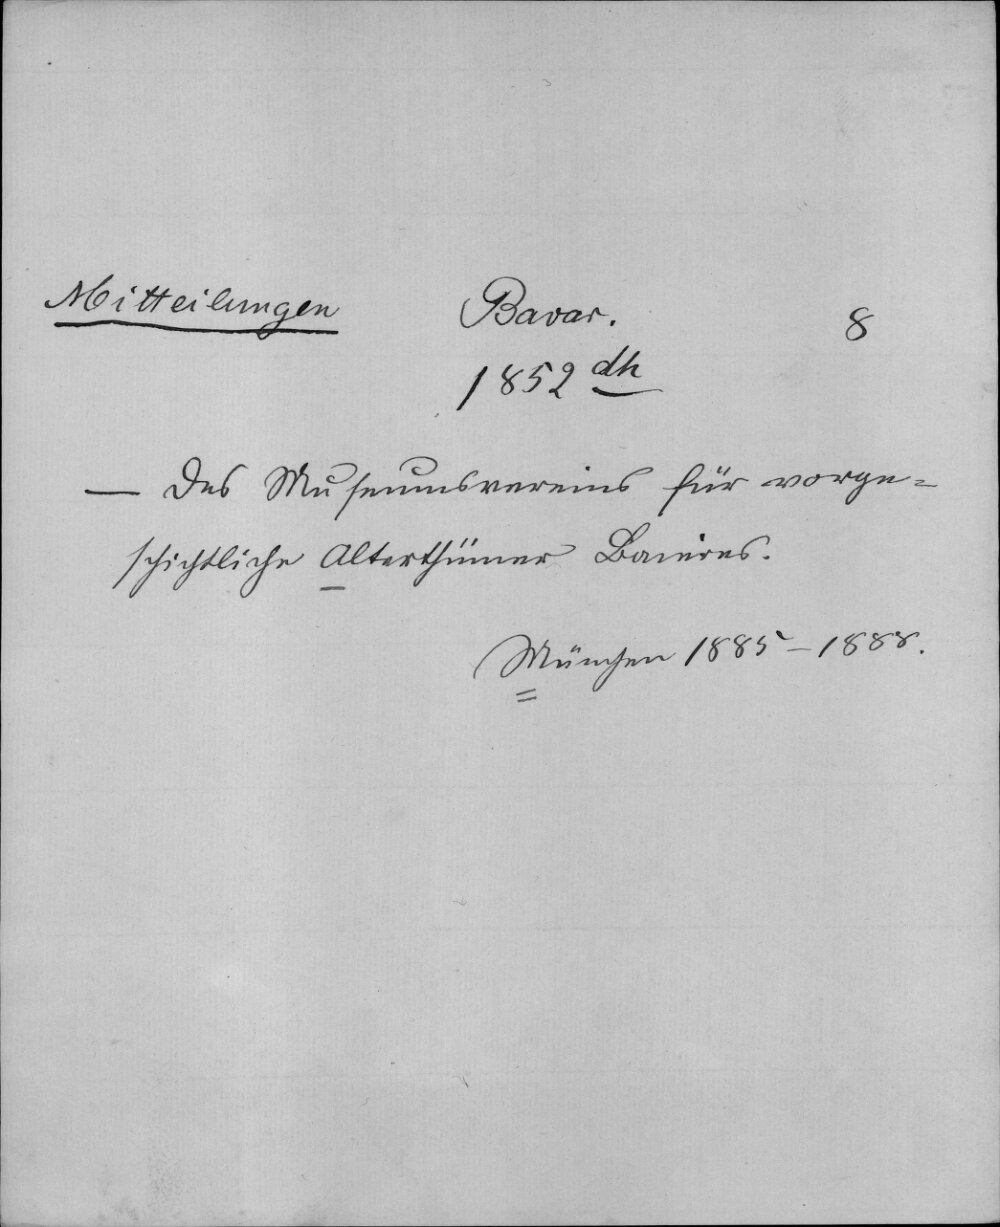 Mitteilungen Bavar. 8
1852 dh
— des Museumsvereins für vorge=
schichtliche Alterthümer Baierns.
München 1885–1888.